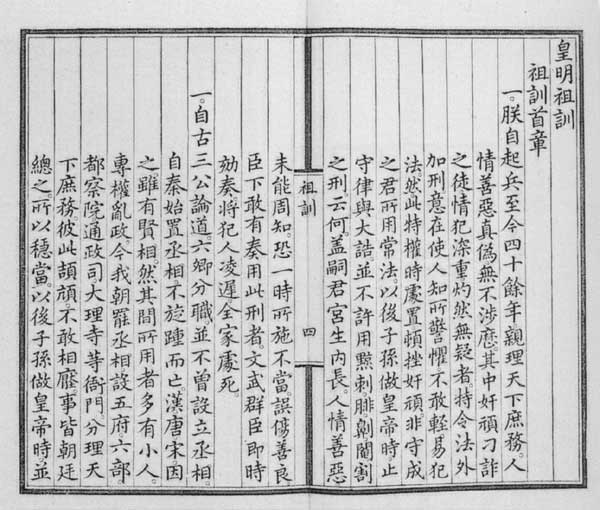 皇明祖訓
祖訓首章
一。朕自起兵至今四十餘年。親理天下庶務。人
情善惡真偽。無不涉歷。其中奸頑刁詐
之徒。情犯深重。灼然無疑者。特令法外
加刑。意在使人知所警懼。不敢輕易犯
法。然此特權時處置。頓挫奸頑。非守成
之君所用常法。以後子孫做皇帝時。止
守律與大誥。並不許用黥刺腓劓閹割
之刑。云何。蓋嗣君宮生內長。人情善惡
祖訓
四
未能周知。恐一時所施不當。誤傷善良。
臣下敢有奏用此刑者。文武羣臣即時
劾奏。將犯人凌遲。全家處死。
一。自古三公論道。六卿分職。並不曾設立丞相。
自秦始置丞相。不旋踵而亡。漢唐宋因
之。雖有賢相。然其間所用者多有小人。
專權亂政。今我朝罷丞相。設五府六部
都察院通政司大理寺等衙門。分理天
下庶務。彼此頡頏。不敢相壓。事皆朝廷
總之。所以穩當。以後子孫做皇帝時。並